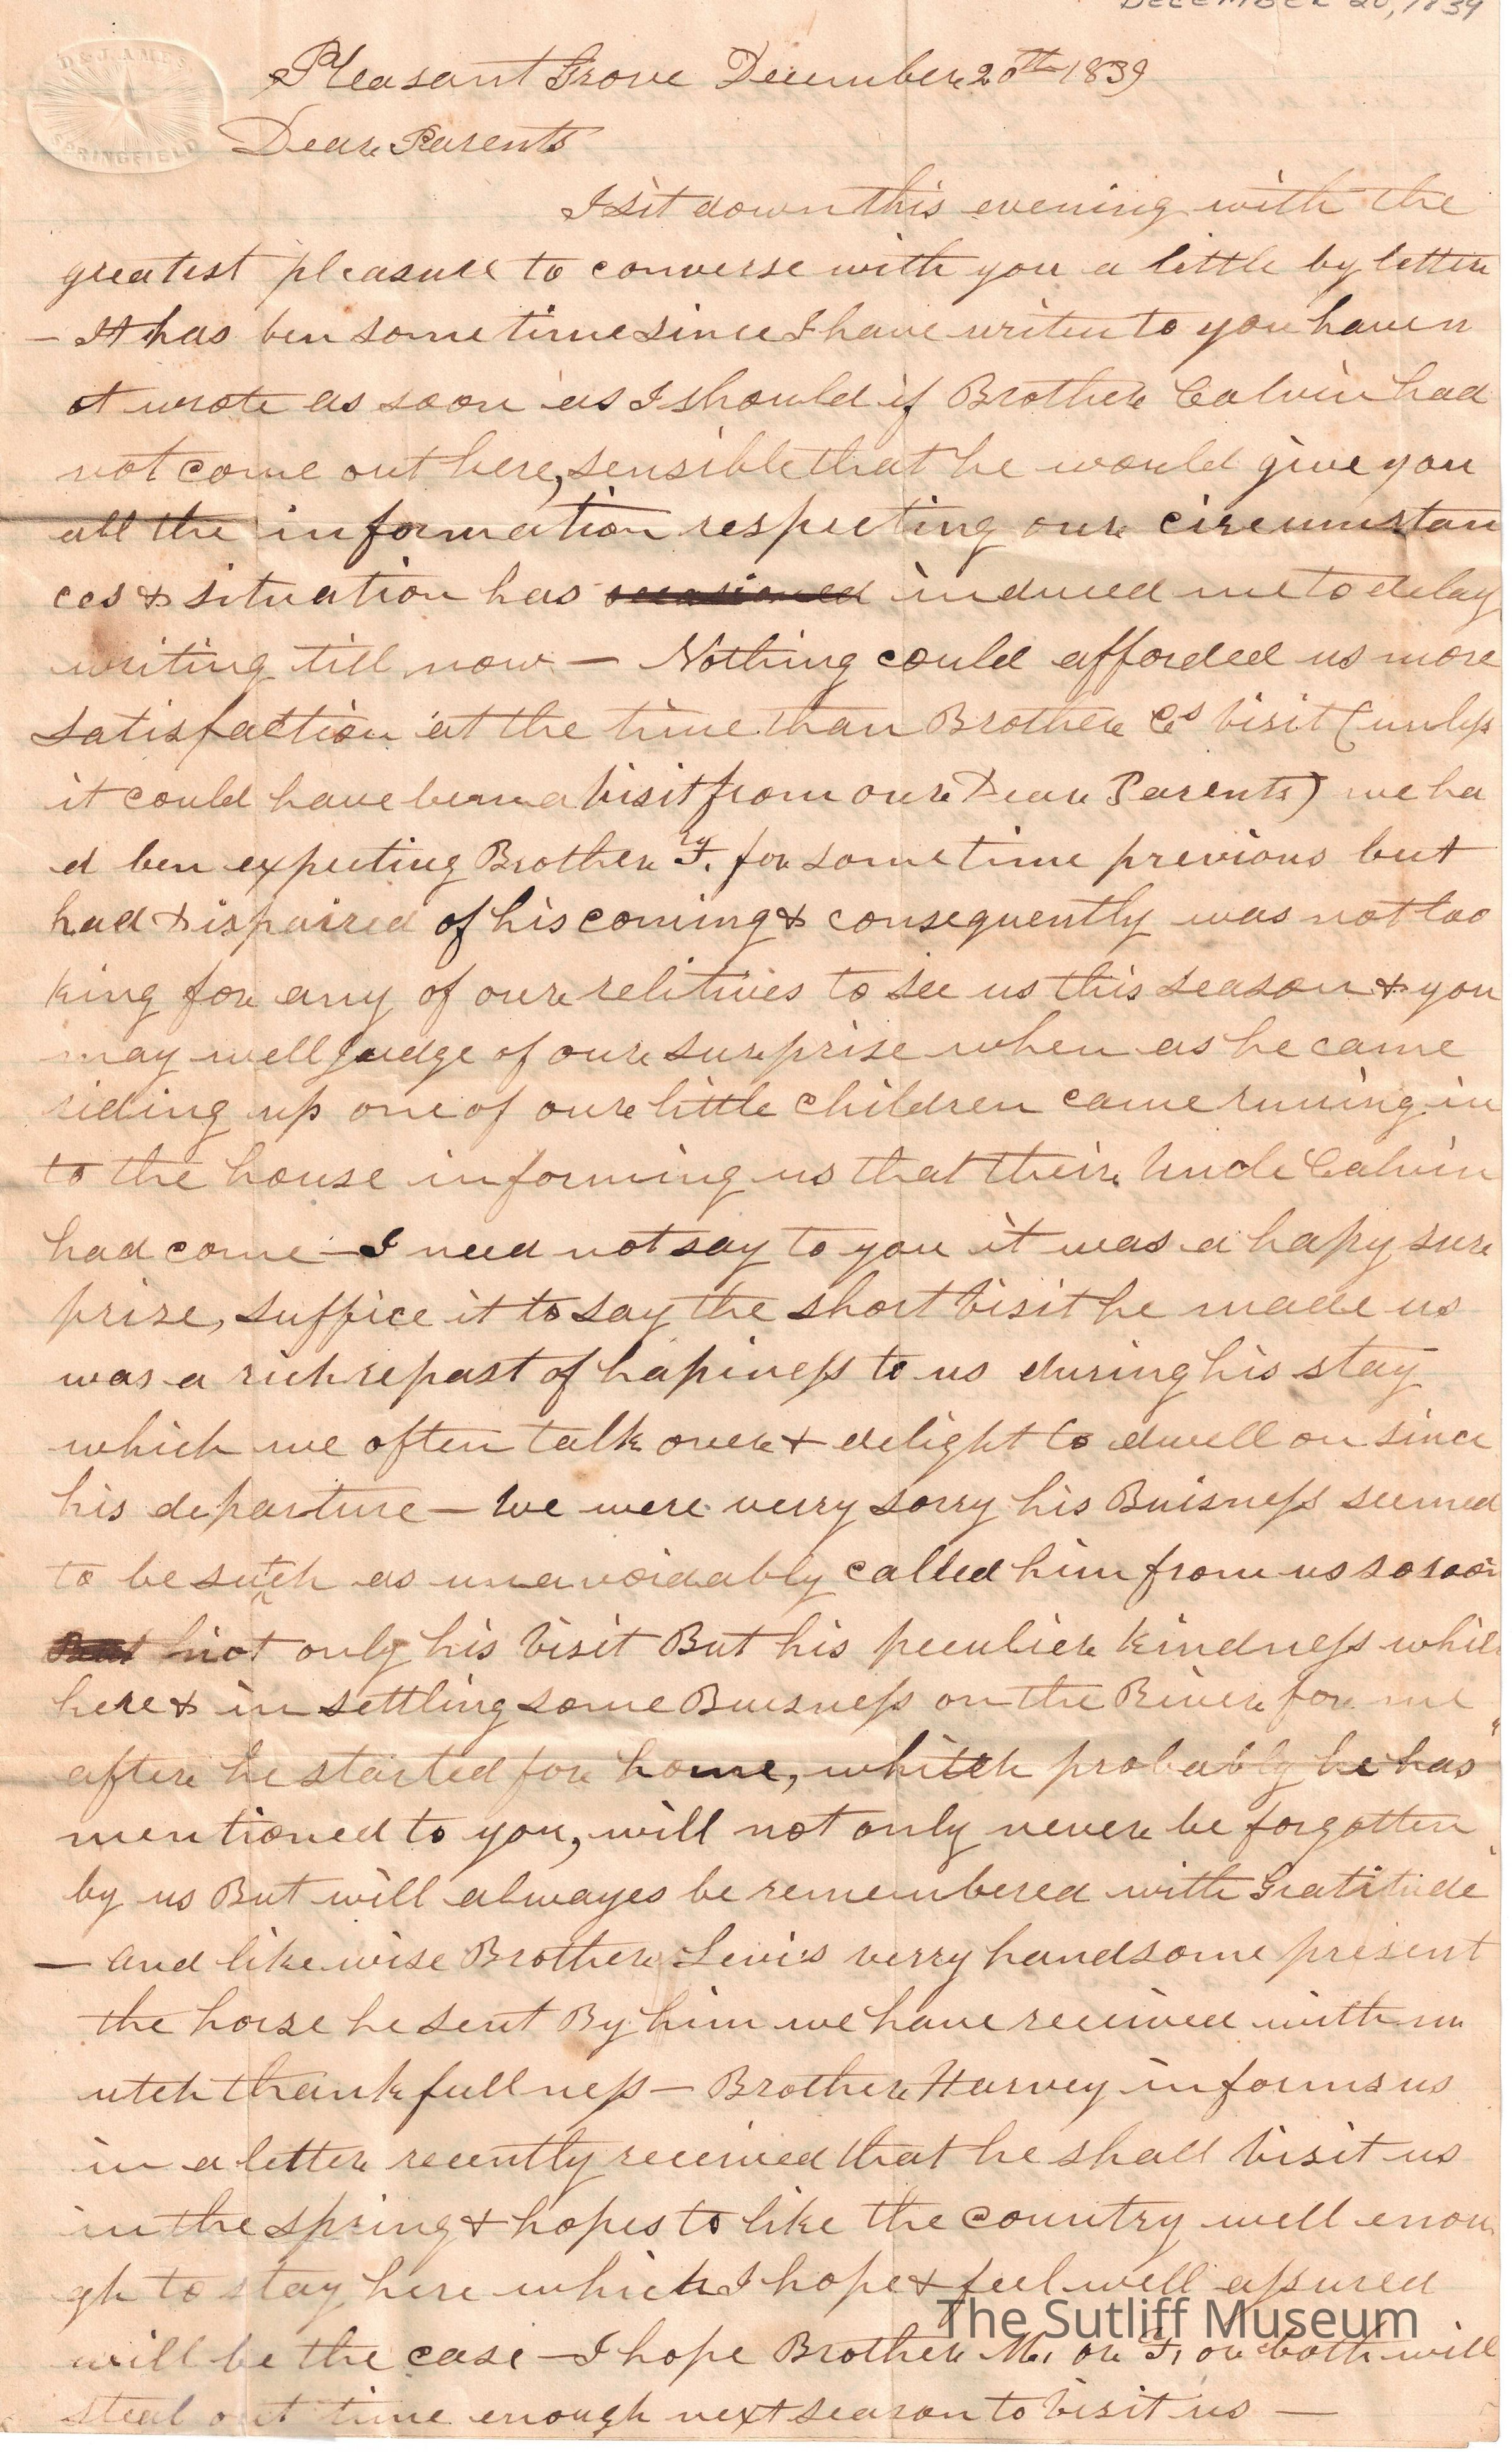 DECEMBER 20, 1839
D & J. AMES
SPRINGFIELD
Pleasant Grove December 20th 1839
Dear Parents
I sit down this evening with the
greatest pleasure to converse with you a little by letter
— It has ben some time since I have writen to you haven
ot wrote as soon as I should if Brother Calvin had
not come out here, sensible that he would give you
all the information respecting our circumstan
ces & situation has occasioned induced me to delay
writing till now — Nothing could afforded us more
satisfaction at the time than Brother Cs visit (unless
it could have been a visit from our Dear Parents) we ha
d ben expecting Brother F. for some time previous but
had dispaired of his coming & consequently was not loo
king for any of our relitives to see us this season & you
may well judge of our surprise when as he came
riding up one of our little children came runing in
to the house informing us that their Uncle Calvin
had come — I need not say to you it was a hapy sur
prize, suffice it to say the short visit he made us
was a rich repast of hapiness to us during his stay
which we often talk over & delight to dwell on since
his departure — We were verry sorry his Buisness seemed
to be sutch as unavoidably called him from us so soon
But not only his visit But his peculier kindness while
here & in settling some Buisness on the River for me
after he started for home, whitch probably he has
mentioned to you, will not only never be forgotten
by us But will alwayes be remembered with Gratitude
— and likewise Brother Levis verry handsome present
the horse he sent By him we have received with m
utch thankfullness — Brother Harvey informs us
in a letter recently received that he shall visit us
in the spring & hopes to like the country well enou
gh to stay here which I hope & feel well assured
will be the case — I hope Brother M. or F, or both will
steal out time enough next season to visit us —
The Sutliff Museum